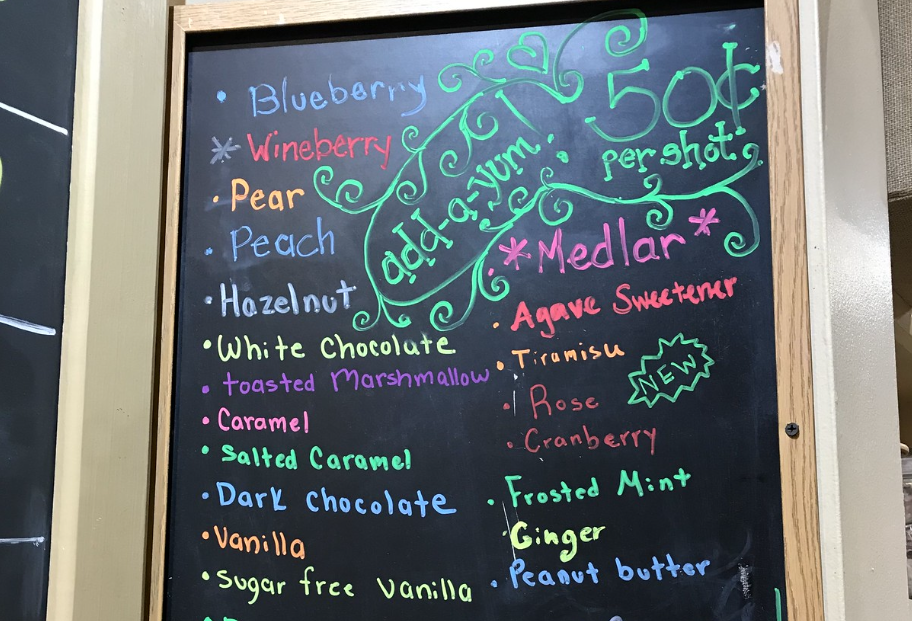 • Blueberry
* Wineberry
• Pear
• Peach
• Hazelnut
• White Chocolate
• toasted Marshmallow
• Caramel
• Salted Caramel
• Dark Chocolate
• Vanilla
• Sugar free Vanilla
add-a-yum!
50¢
per shot
* Medlar *
• Agave Sweetener
• Tiramisu
• Rose
NEW
• Cranberry
• Frosted Mint
• Ginger
• Peanut butter